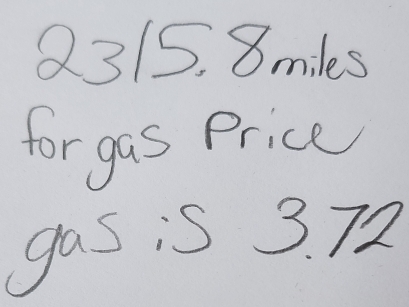 2315.8 miles
for gas Price
gas is 3.72